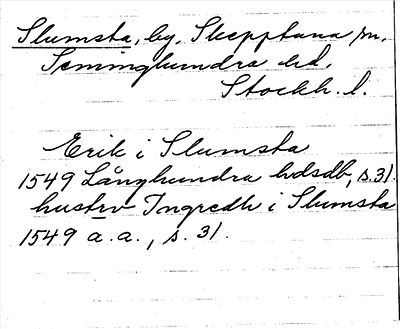 Slumsta, by, Skepptuna sn.
Seminghundra hd,
Stockh. l.
Erik i Slumsta
1549 Långhundra hdsdb, s. 31.
hustrv Ingredh i Slumsta
1549 a. a., s. 31.